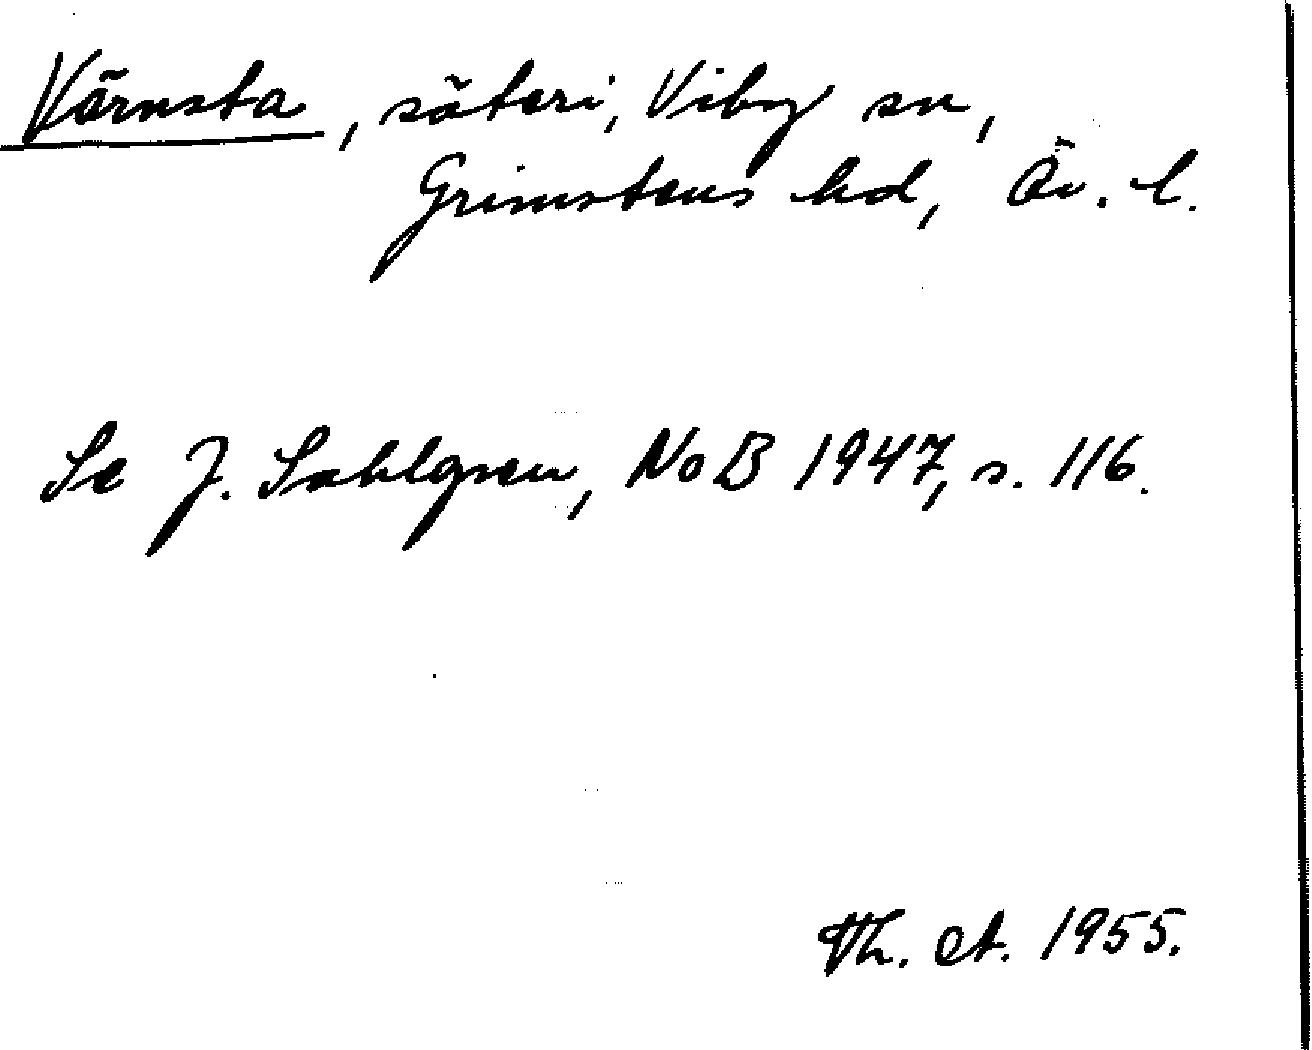 Värnsta, säteri, Viby sn,
Grimstens hd, Ör. l.
Se J. Sahlgren, NoB 1947, s. 116.
Th. A. 1955.